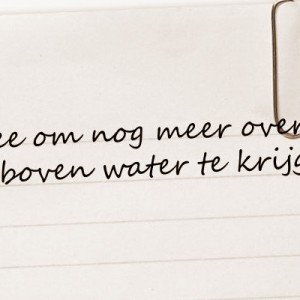 ee om nog meer over
boven water te krijg